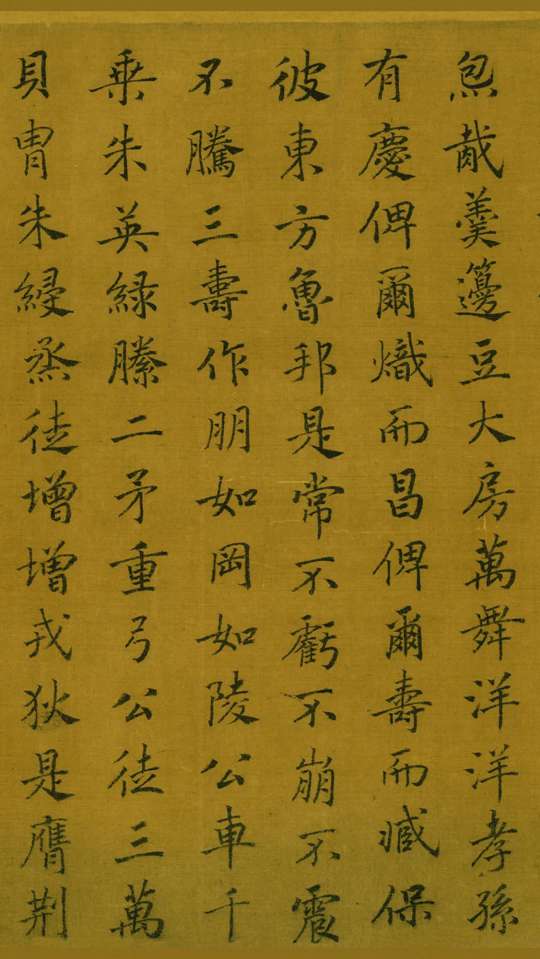 炰胾羹籩豆大房萬舞洋洋孝孫
有慶俾爾熾而昌俾爾壽而臧保
彼東方魯邦是常不虧不崩不震
不騰三壽作朋如岡如陵公車千
乘朱英綠縢二矛重弓公徒三萬
貝冑朱綅烝徒增增戎狄是膺荊